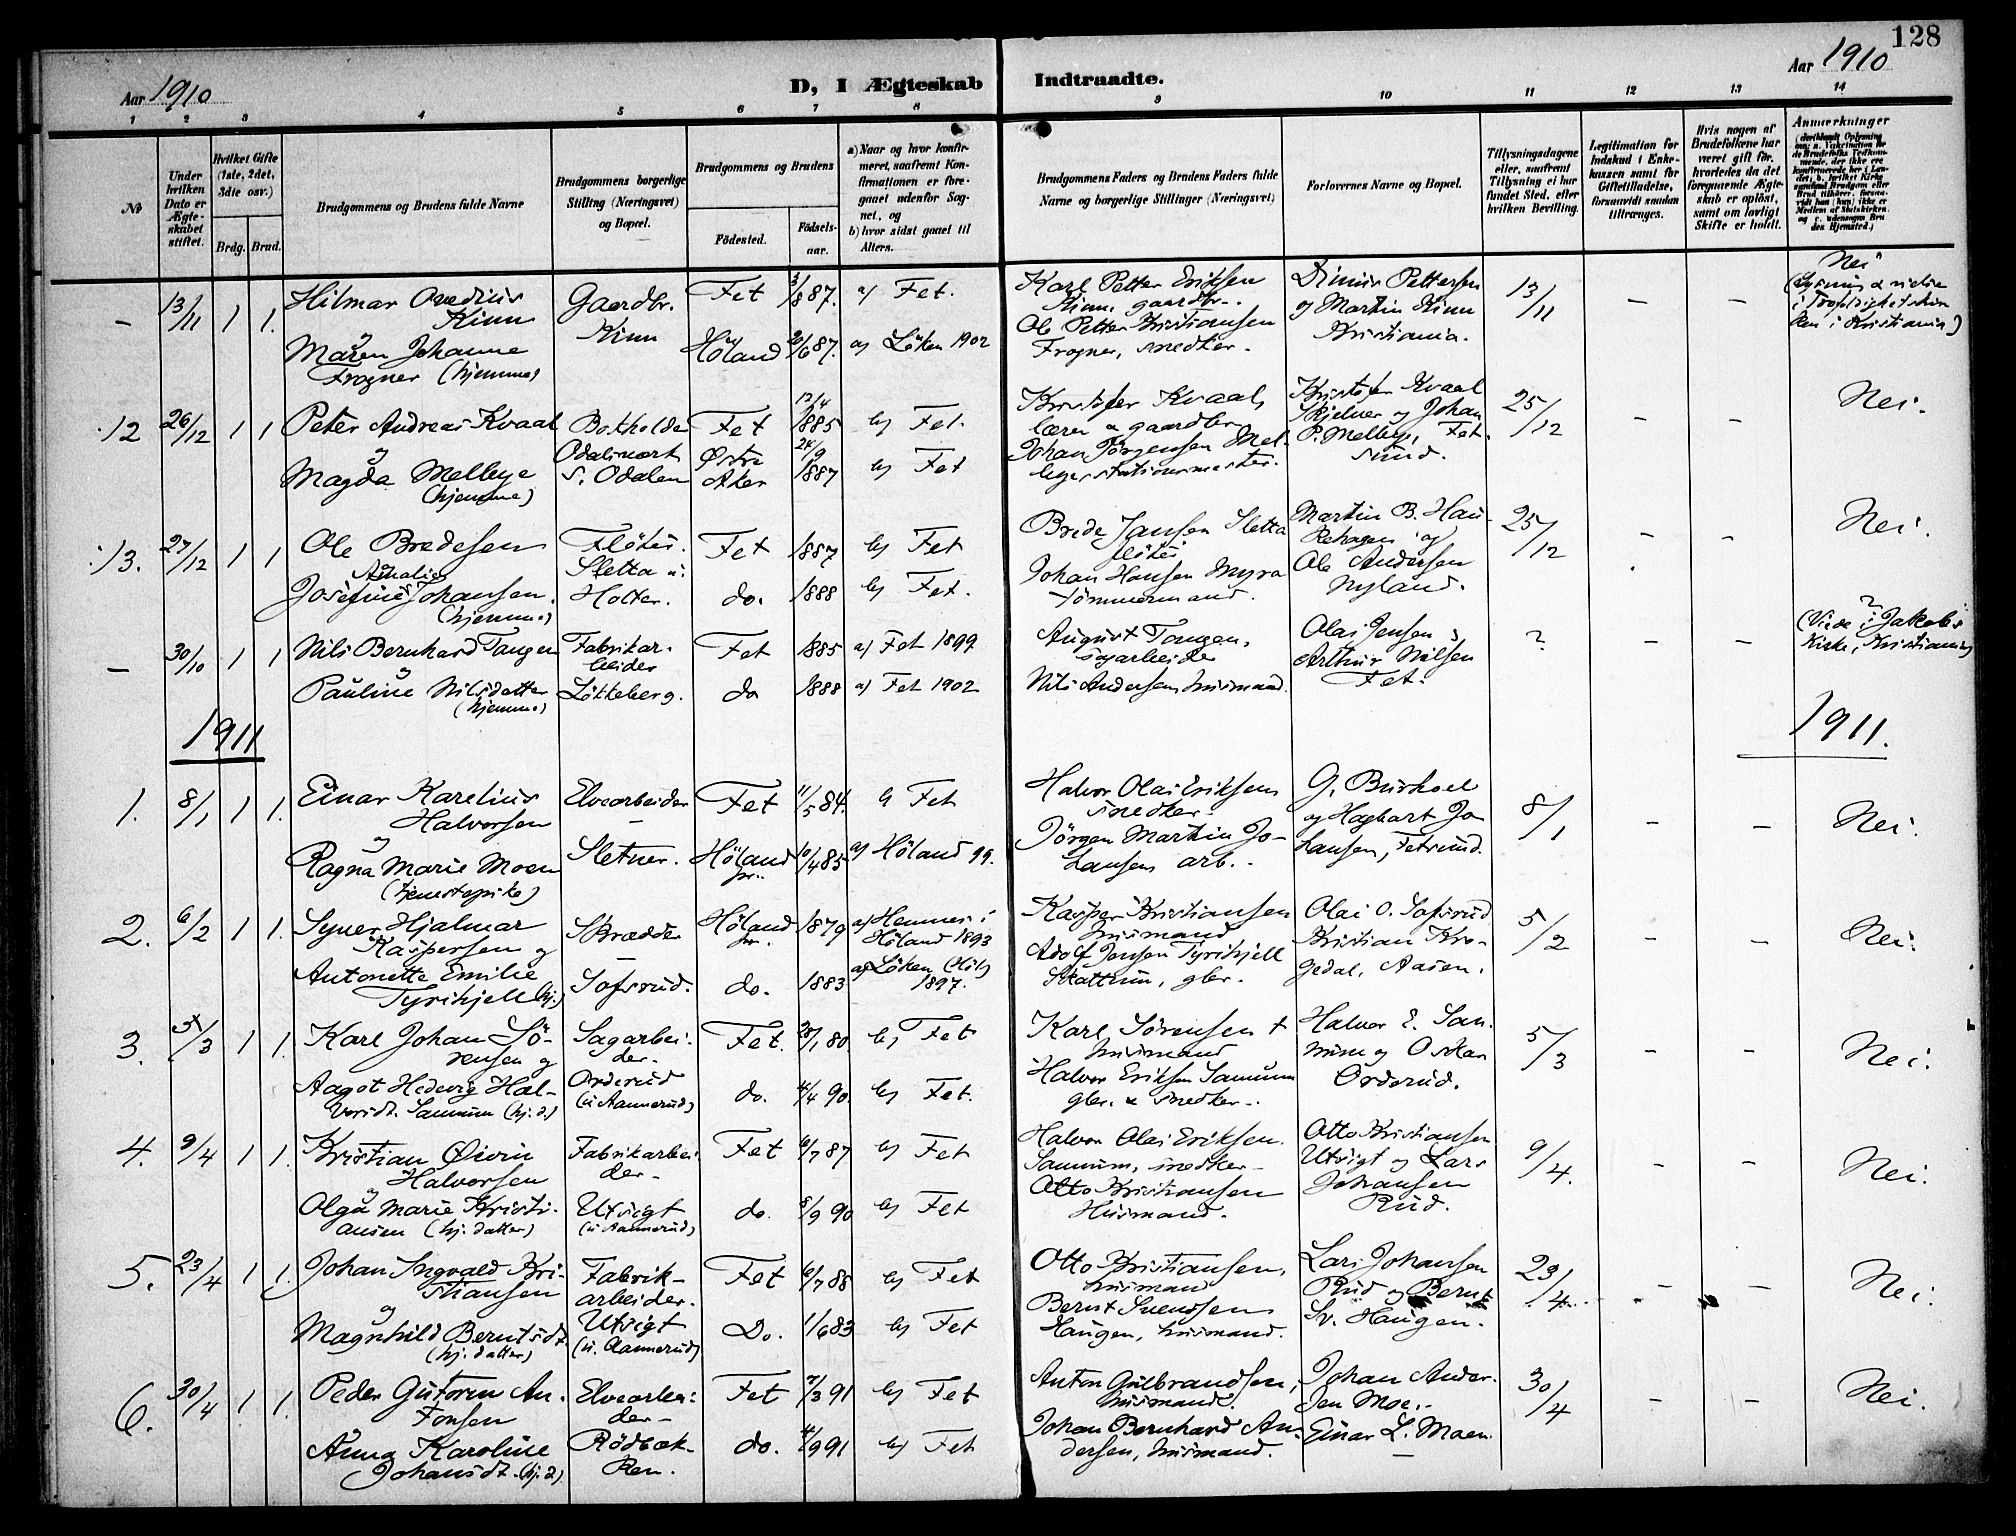 128
Aar 1910
D, I Ægteskab Indtraadte.
Aar 1910
1 2 3 4 5 6 7 8 9 10 11 12 13 14
№
Under hvilken Dato er Ægteskabet stiftet.
Hvilket Gifte (1ste, 2det, 3die osv.)
Brdg. Brud.
Brudgommens og Brudens fulde Navne
Brudgommens borgerlige Stilling (Næringsvei) og Bopæl.
Brudgommens og Brudens
Fødested. Fødselsaar.
a) Naar og hvor konfirmeret, saafremt Konfirmationen er foregaaet udenfor Sognet, og
b) hvor sidst gaaet til Alters.
Brudgommens Faders og Brudens Faders fulde Navne og borgerlige Stillinger (Næringsvei)
Forlovernes Navne og Bopæl.
Tillysningsdagene eller, saafremt Tillysning ei har fundet Sted, efter hvilken Bevilling.
Legitimation for Indskud i Enkekassen samt for Giftetilladelse, forsaavidt saadan tiltrænges.
Hvis nogen af Brudefolkene har været gift før, hvorledes da det foregaaende Ægteskab er opløst, samt om lovligt Skifte er holdt.
Anmærkninger
– 13/11 1 1. Hilmar Ovedius Kinn Gaardbr. Kinn Fet 3/8 87. a) Fet. Karl Petter Eriksen Kinn, gaardbr. Dinius Pettersen og Martin Kinn Kristiania. 13/11 – – Nei
og Maren Johanne Frogner (hjemme) Høland 20/6 87. a) Løken 1902 Ole Petter Kristiansen Frogner, snedker. i Kristiania)
12 26/12 1 1 Peter Andreas Kvaal Fet 12/4 1885 b) Fet. Kristofer Kvaal, lærer & gaardbr. Kristofer Kvaal Skjelner og Johan P. Mellbye, Fetsund. 25/12 – – Nei.
og Magda Mellbye (hjemme) S. Odalen Østre Aker 24/9 1887 b) Fet Johan Jørgensen Mellbye, stationsmester.
13. 27/12 1 1 Ole Bredesen Fløter. Sletta Fet 1887 b) Fet Brede Jansen Sletta fløter Martin B. Hau- og Ole Andersen Nyland. 25/12 – – Nei.
Josefine Amalie Johansen. (hjemme) Holter. do. 1888 b) Fet. Johan Hansen Myra tømmermand.
– 30/10 1 1 Nils Bernhard Tangen Fabrikarbeider Fet 1885 a) Fet 1899 August Tangen, sagarbeider Olai Jensen, Arthur Nilsen Fet. ? – – (Viede i Jakobs Kirke, Kristiania)
og Pauline Nilsdatter (hjemme) Løkkeberg. do 1888 a) Fet 1902 Nils Andersen husmand.
1911 1911.
1. 8/1 1 1. Einar Karelius Halvorsen Elvearbeider Fet 11/5 84. b) Fet Halvor Olai Eriksen snedker. G. Burhoel og Hagbart Johansen, Fetsund. 8/1 – – Nei.
og Ragna Marie Moen (tjenestepike) Sletner. Høland 10/4 85 a) Høland 99. Jørgen Martin Johansen arb.
2. 6/2 1 1. Syver Hjalmar Kaspersen og Skrædder Høland 1879 a) Hemnes i Høland 1893 Kasper Kristiansen husmand Olai O. Sofsrud Kristian Krogedal, Aasen. 5/2 – – Nei.
Antonette Emilie Tyrihjell (hj.) Sofsrud. do. 1883 a) Løken (Høl) 1897. Adolf Jensen Tyrihjell Skattum, gbr.
3. 5/3 1 1. Karl Johan Sørensen og Sagarbeider. Fet. 28/1 80. b) Fet Karl Sørensen † husmand Halvor E. Sannum og Oskar Orderud. 5/3 – – Nei.
Aagot Hedevig Halvorsd. Sannum (hj.d.) Orderud (u Aannerud) do. 4/4 90. b) Fet. Halvor Eriksen Sannum gbr. & snedker.
4. 9/4 1 1. Kristian Øivin Halvorsen Fabrikarbeider. Fet 6/7 87 b) Fet Halvor Olai Eriksen. Sannum, snedker. Otto Kristiansen Utsigt og Lars Johansen Rud. 9/4. – – Nei.
og Olga Marie Kristiansen (hj. datter) Utsigt (u Aannerud) do. 8/9 90 b) Fet Otto Kristiansen Husmand.
5. 23/4 1 1. Johan Ingvald Kristiansen Fabrikarbeider. Fet 6/7 88 b) Fet Otto Kristiansen, husmand Lars Johansen Rud og Bernt Sv. Haugen. 23/4 – – Nei.
og Magnhild Berntsdt. (hj. datter) Utsigt (u. Aannerud) Do. 1/6 83 b) Fet Bernt Svendsen Haugen, husmand.
6. 30/4 1. 1. Peder Gutorm Antonsen Elvearbeider. Fet 7/3 91 b) Fet Anton Gulbrandsen, husmand. Johan Andersen Moe. 30/4 – – Nei.
Anna Karoline Johansdt. (hj. d.) Rødbakken. do. 4/9 91 b) Fet Johan Bernhard Andersen, husmand. Einar L. Moen.